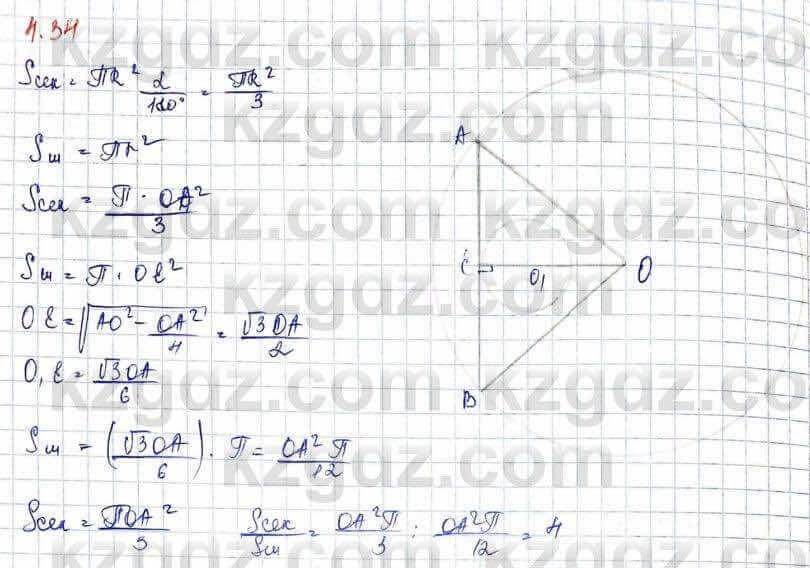 4.34
Sсек = πR² α/180° = πR²/3
Sш = πr²
Sсек = π · OA²/3
Sш = π · Oℓ²
Oℓ = √(AO² - OA²/4) = √3 OA/2
O₁ℓ = √3OA/6
Sш = (√3OA/6) · π = OA²π/12
Sсек = πOA²/3 Sсек/Sш = OA²π/3 : OA²π/12 = 4
A
C
O₁
O
B
kzgdz.com kzgdz.com
kzgdz.com kzgdz.com
kzgdz.com kzgdz.com
kzgdz.com kzgdz.com
kzgdz.com kzgdz.com
kzgdz.com kzgdz.com
kzgdz.com kzgdz.com